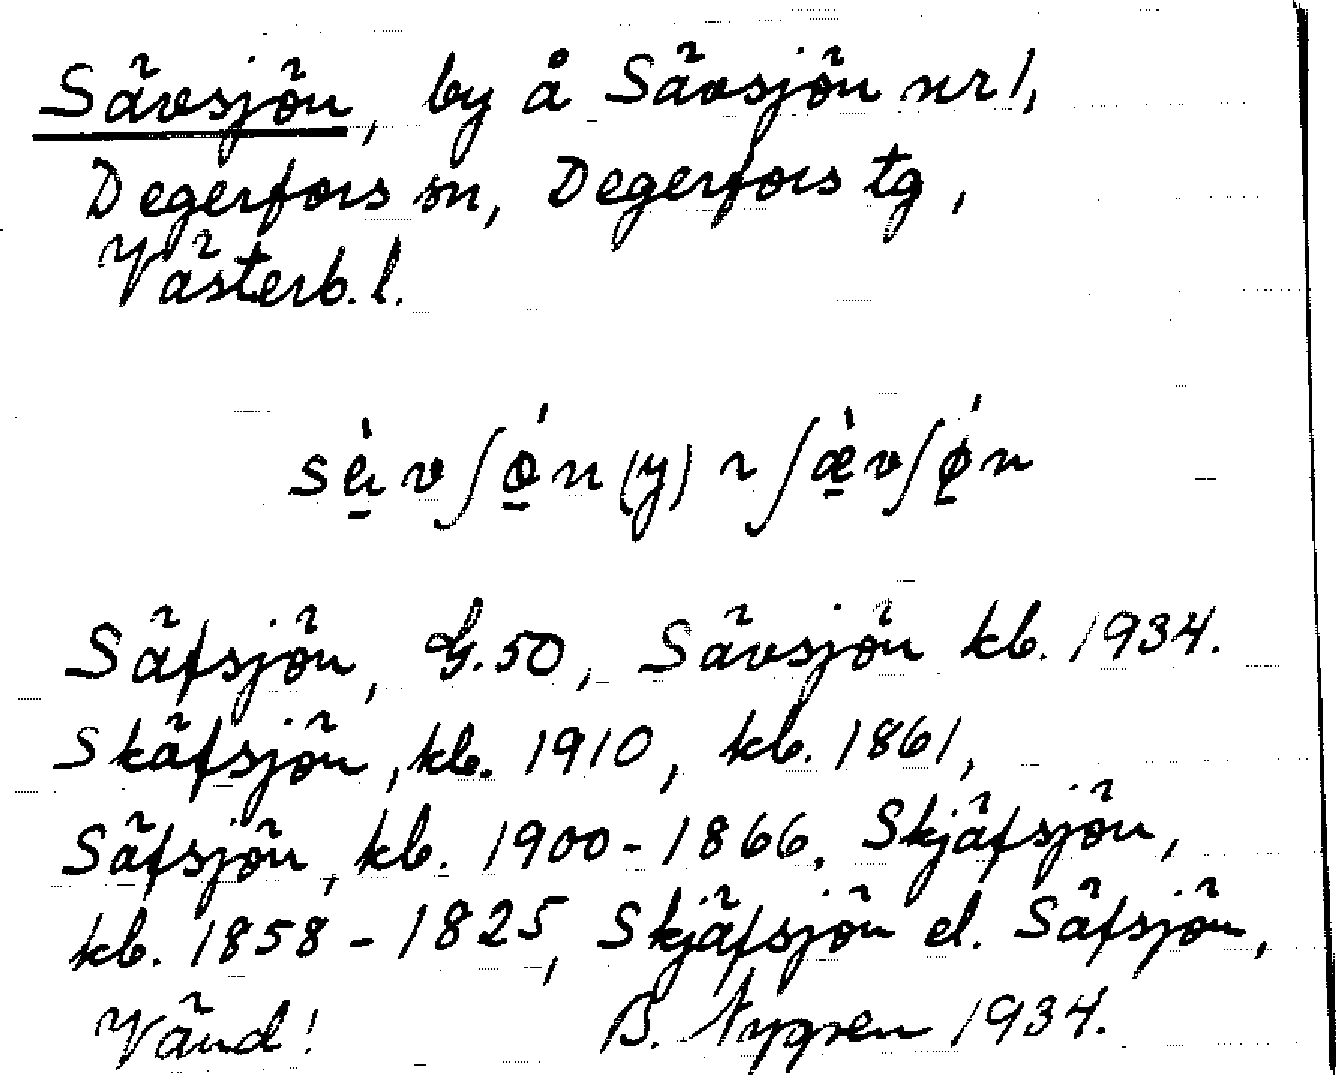 Sävsjön, by å Sävsjön nr 1,
Degerfors sn, Degerfors tg,
Västerb. l.
Säfsjön, G. 50, Sävsjön kb. 1934.
Skäfsjön, kb. 1910, kb. 1861,
Säfsjön, kb. 1900-1866. Skjäfsjön,
kb. 1858-1825, Skjäfsjön el. Säfsjön,
Vänd! B. Nygren 1934.